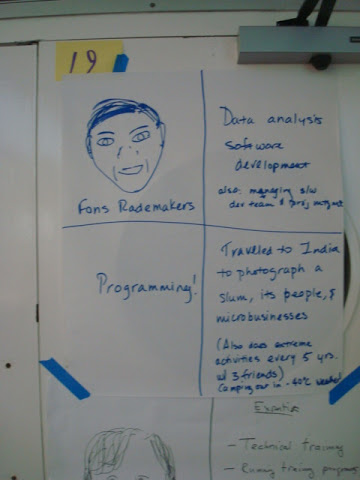 19
Data analysis
software
development
also: managing s/w
dev team & proj mgmt
Fons Rademakers
Programming!
Traveled to India
to photograph a
slum, its people, &
microbusinesses
(Also does extreme
activities every 5 yrs.
w/ 3 friends)
Camping out in -40°C
Expertise
- Technical training
- Running training programs